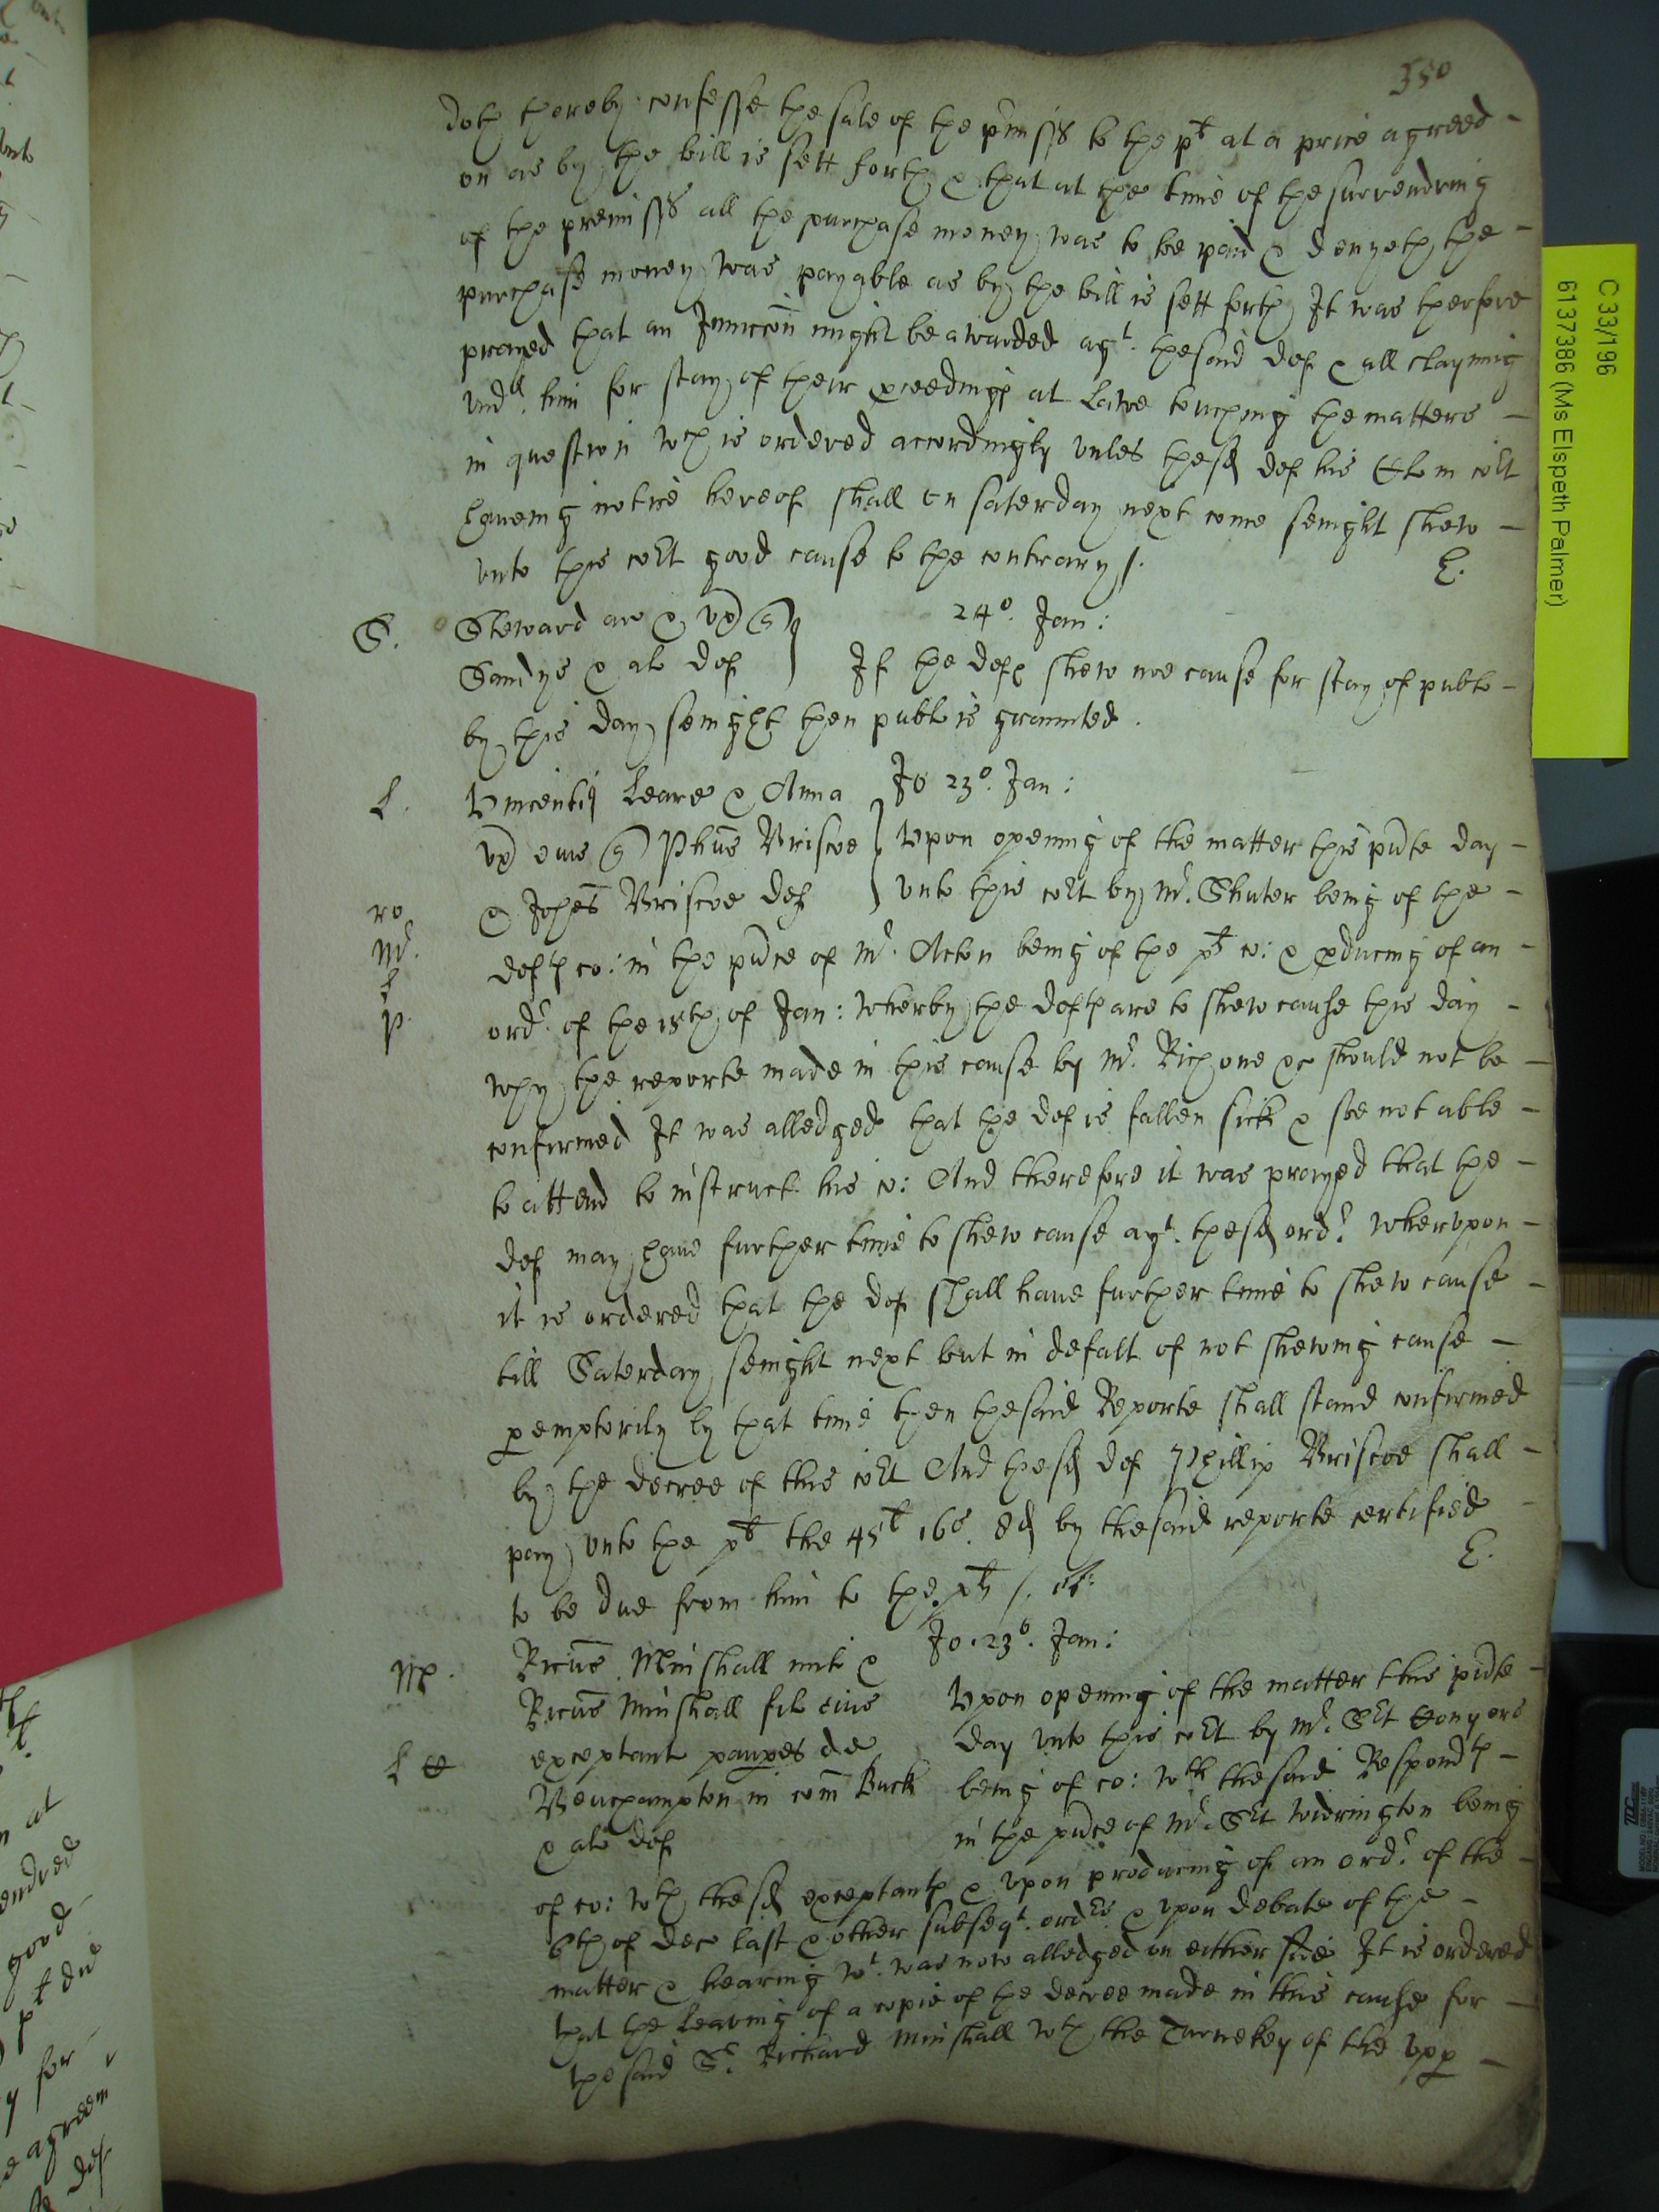 350
doth thereby confesse the sale of the pmisses to the plt at a price agreed -
on as by the bill is sett forth & that at the time of the surrendring
of the premisses all the purchase money was to be paid & denyeth the -
purchase money was payable as by the bill is sett forth It was therfore
prayed that an Iniuccon might be awarded agt. the said def & all clayming
vndr. him for stay of their pceedings at Lawe touching the matters -
in question wch is ordered accordingly vnles the sd def his in Co:rt
haueing notice hereof shall on saterday next come senight shew -
vnto this Co:rt good cause to the contrary /.
E.
S. Steward ar & vx q
24o. Jan:
Sandys & al def } If the defts shew noe cause for stay of publ -
by this day senight then publ is graunted.
L. Vincentius Leare & Anna
Jo 23o. Jan:
vx eius q Phus Briscoe } Vpon opening of the matter this pnte day -
& Johes Briscoe def } vnto this Co:rt by Mr. Shuter being of the -
ro
Mr.
L
P.
defts co: in the pnce of Mr. Acton being of the plts co: & pducing of an -
ordr. of the 15th of Jan: wherby the defts are to shew cause this day -
why the reporte made in this cause by Mr. Rich one &c should not be -
confirmed It was alledged that the def is fallen sick & soe not able -
to attend to instruct his co: And therefore it was prayed that the -
def may haue further time to shew cause agt. the sd ordr. wherupon -
it is ordered that the def shall haue further time to shew cause -
till Saterday senight next but in defalt of not shewing cause -
pemptorily by that time then the said Reporte shall stand confirmed
by the decree of this Co:rt And the sd def Phillip Briscoe shall -
pay vnto the plt the 45l 16s. 8d by the said reporte certified -
to be due from him to the plts /.
E.
Mp. Ricus Minshall mil &
Jo. 23o. Jan:
Ricus Minshall fil eius
Vpon opening of the matter this pnte -
day vnto this Co:rt by Mr. Srt Conyers
L exceptant paupes de
being of co: wth the said Respondts -
Beuchampton in com Buck
in the pnce of Mr. Srt Widrington being
& al def
of co: wth the sd exceptants & vpon producing of an ordr. of the -
6th of Dec last & other subseqt. ordrs & vpon debate of the -
matter & hearing wt. was now alledged on either side It is ordered
that the leaving of a copie of the decree made in this cause for -
the said Sr. Richard Minshall wth the Turnekey of the Vpp -
C 33/196
6137386 (Ms Elspeth Palmer)